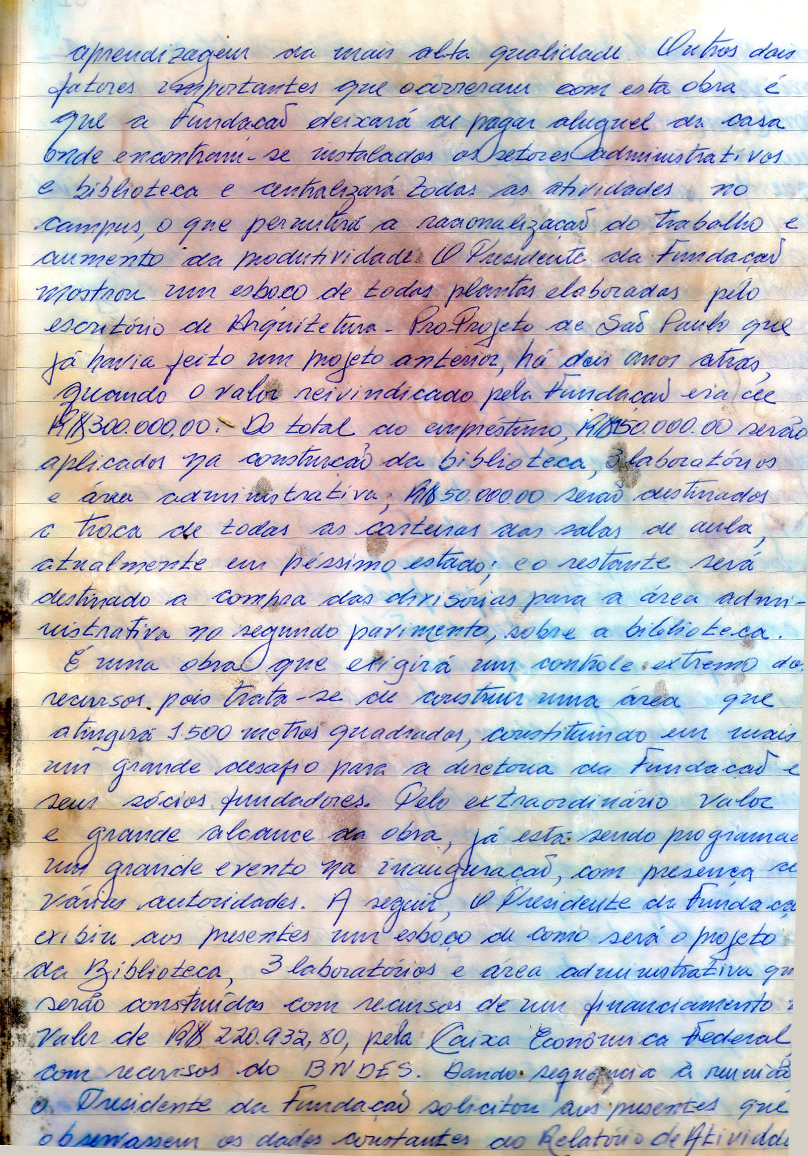 aprendizagem da mais alta qualidade. Outros dois
fatores importantes que ocorreram com esta obra é
que a Fundação deixará de pagar aluguel da casa
onde encontram-se instalados os setores administrativos
e biblioteca e centralizará todas as atividades no
campus, o que permitirá a racionalização do trabalho e
aumento da produtividade. O Presidente da Fundação
mostrou um esboço de todas plantas elaboradas pelo
escritório de Arquitetura - ProProjeto de São Paulo que
já havia feito um projeto anterior, há dois anos atras,
quando o valor reivindicado pela Fundação era de
R$300.000,00. Do total do empréstimo, R$150.000.00 serão
aplicados na construção da biblioteca, 3 laboratórios
e área administrativa; R$50.000.00 serão destinados
a troca de todas as carteiras das salas de aula,
atualmente em péssimo estado; e o restante será
destinado a compra das divisórias para a área admi-
nistrativa no segundo pavimento, sobre a biblioteca.
É uma obra que exigirá um controle extremo dos
recursos pois trata-se de construir uma área que
atingirá 1500 metros quadrados, constituindo em mais
um grande desafio para a diretoria da Fundação e
seus sócios fundadores. Pelo extraordinário valor
e grande alcance da obra, já está sendo programad
um grande evento na inauguração, com presença de
várias autoridades. A seguir, O Presidente da Fundaçã
exibiu aos presentes um esboço de como será o projeto
da Biblioteca, 3 laboratórios e área administrativa qu
serão construídos com recursos de um financiamento
valor de R$ 220.932,80, pela Caixa Econômica Federal
com recursos do BNDES. Dando sequência à reunião
o Presidente da Fundação solicitou aos presentes que
observassem os dados constantes do Relatório de Atividade